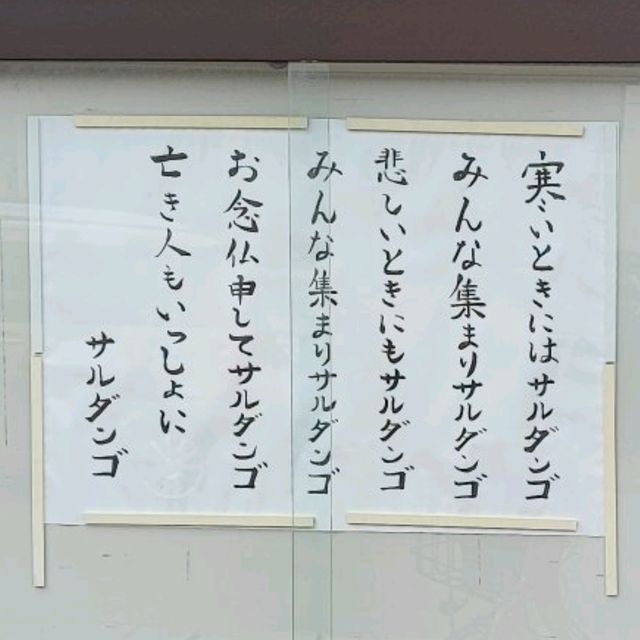 寒いときにはサルダンゴ
みんな集まりサルダンゴ
悲しいときにもサルダンゴ
みんな集まりサルダンゴ
お念仏申してサルダンゴ
亡き人もいっしょに
サルダンゴ